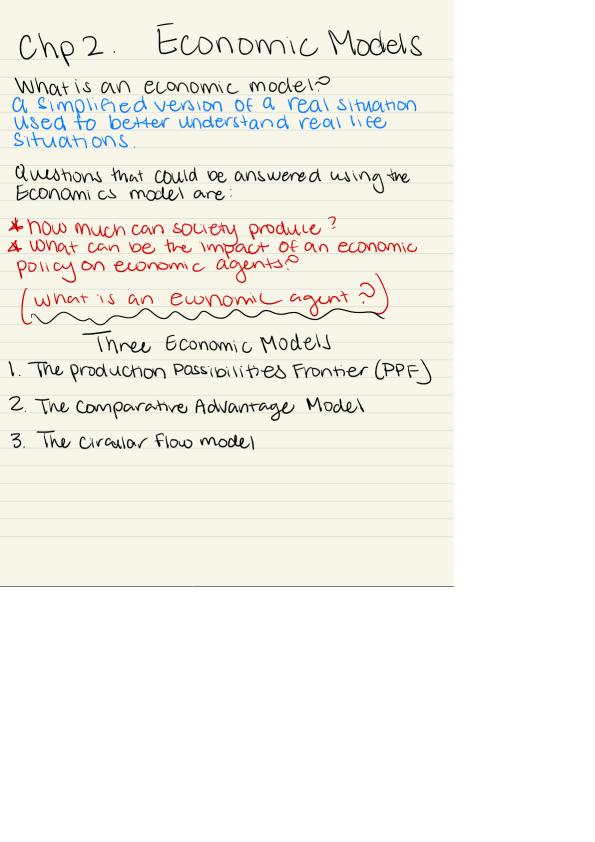 Chp 2. Economic Models
What is an economic model?
a simplified version of a real situation
used to better understand real life
situations.
Questions that could be answered using the
Economics model are:
* how much can society produce?
* what can be the impact of an economic
policy on economic agents?
(what is an economic agent?)
Three Economic Models
1. The production Possibilities Frontier (PPF)
2. The Comparative Advantage Model
3. The Circular Flow model